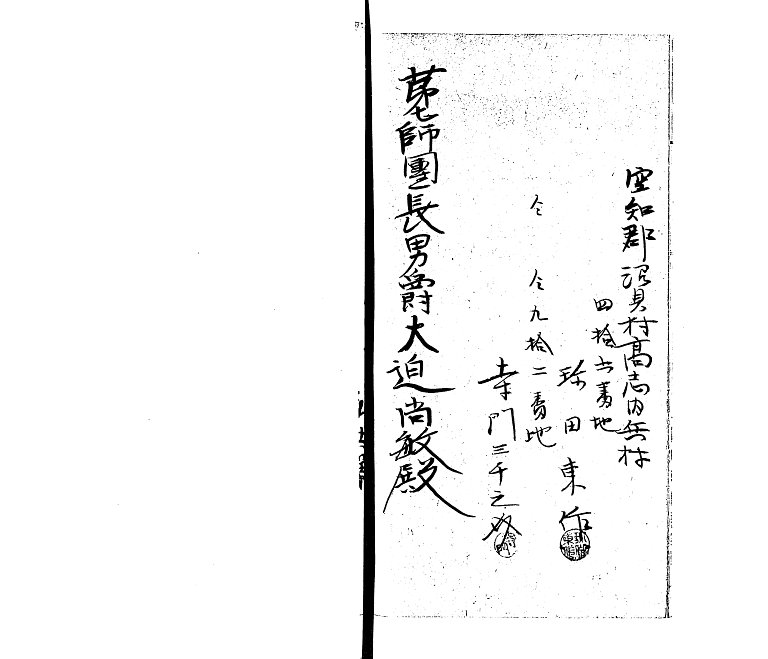 空知郡沼貝村高志内兵村
四拾六番地
珎田東作
仝 仝九拾二番地
寺門三千之烝
第七師團長男爵大迫尚敏殿